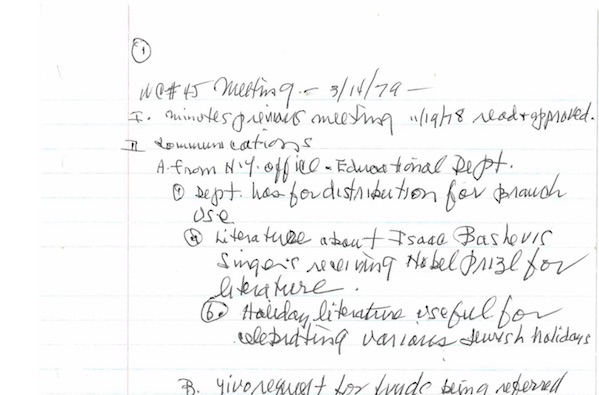 1
WC#45 Meeting - 3/14/79 -
I. Minutes previous meeting 11/19/78 read + approved.
II Communications
A. from N.Y. office - Educational Dept.
① Dept. has for distribution for branch
use
ⓐ Literature about Isaac Bashevis
Singer's receiving Nobel Prize for
literature.
ⓑ. Holiday literature useful for
celebrating various Jewish holidays
B. Yivo request for funds being referred